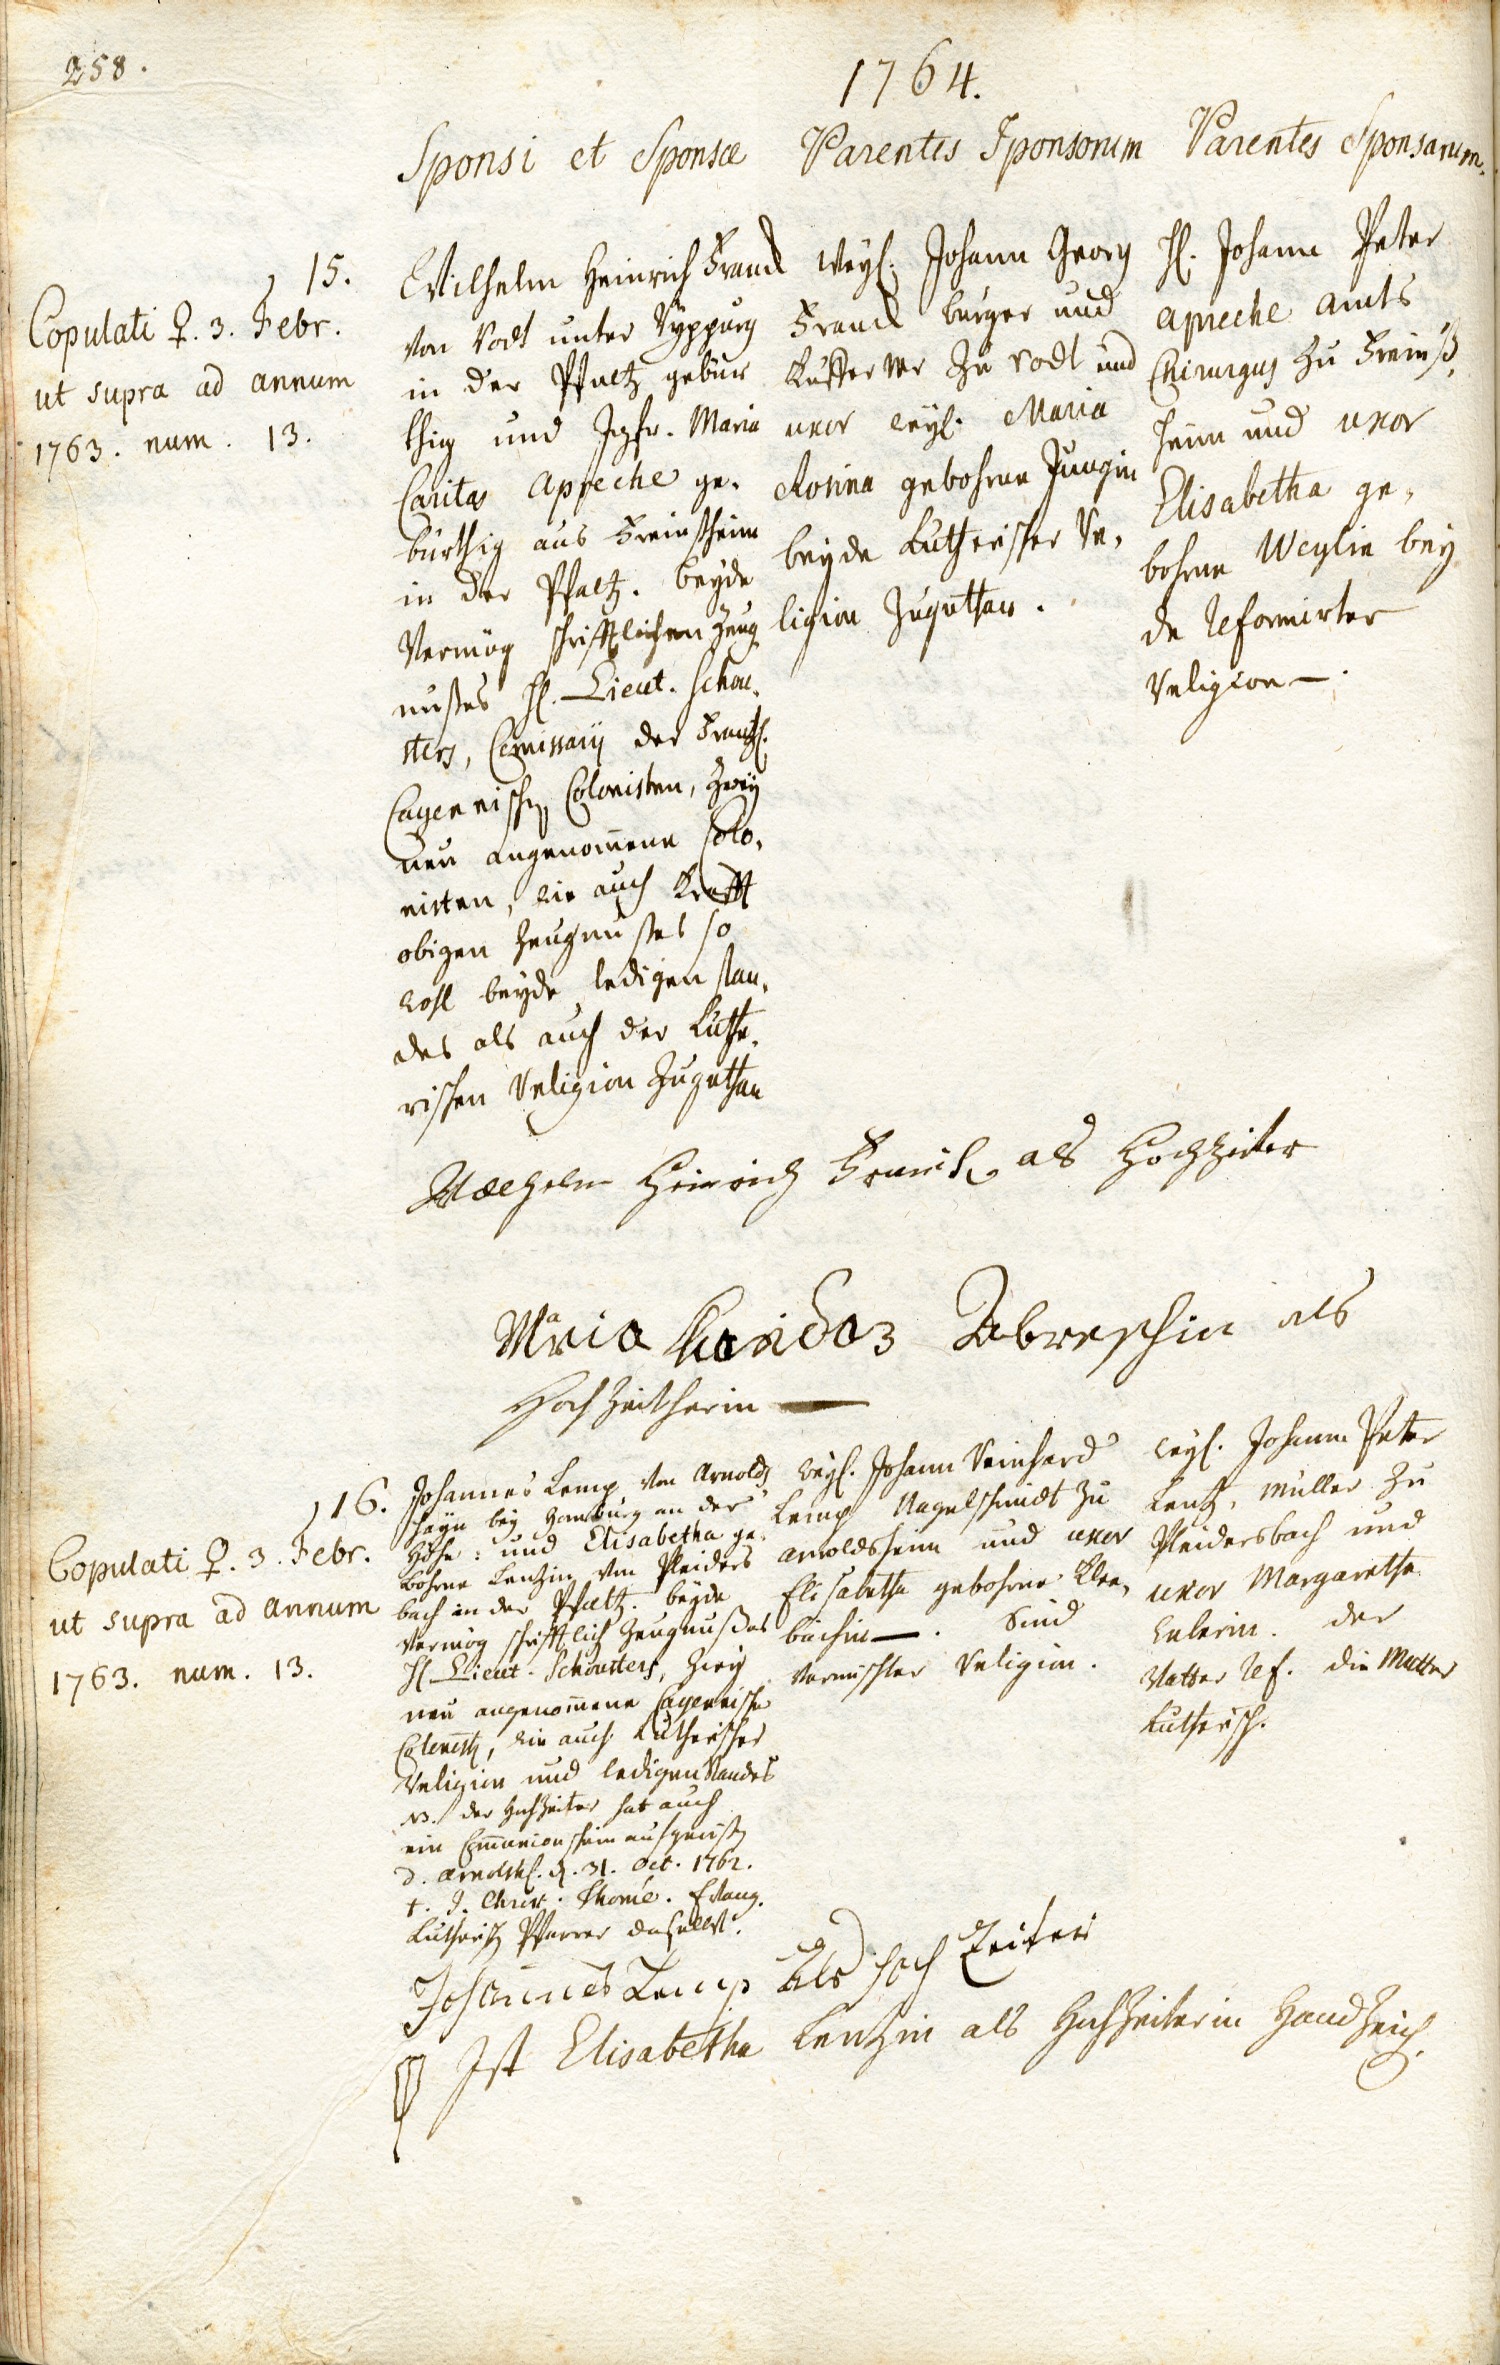 258.
1764.
Sponsi et Sponsæ
Parentes Sponsorum
Parentes Sponsarum.
15.
Copulati ♀. 3. Febr.
ut supra ad annum
1763. num. 13.
Wilhelm Heinrich Franck
von Rodt unter Ryppurg
in der Pfaltz gebür
thig und Jgfr. Maria
Caritas Apreche ge-
bürthig aus Freinßheim
in der Pfaltz. beyde
Vermög schrifftlichem Zeug
nußes H. Lieut. Schou-
sters, Comissarij der Frantz.
Cayennischen Colonisten, Zwey
neu angenom̄ene Colo-
nisten, wie auch Krafft
obigen Zeugnußes so
wohl beyde ledigen stan-
des als auch der Luthe-
rischen Religion Zugethan
weyl. Johann Georg
Franck burger und
Küffer zu Rodt und
uxor weyl. Maria
Rosina gebohrne Jungin
beyde Lutherischer Re-
ligion Zugethan.
H. Johann Peter
Apreche Amts
Chirurgus zu Freinß-
heim und uxor
Elisabetha ge-
bohrne Weylin bey
de Reformirter
Religion —.
Wilhelm Heinrich Franck als Hochzeiter
Maria Caridas Abreschin als
Hochzeitherin —
16.
Copulati ♀. 3. Febr.
ut supra ad annum
1763. num. 13.
Johannes Lemp von Arnolds
hayn bey Homburg an der
Höhe: und Elisabetha ge-
bohrne Lentzin von Pleiders
bach in der Pfaltz. beyde
Vermög schrifftlich Zeugnußes
H. Lieut. Schousters, Zwey
neu angenom̄ene Cayennische
Colonisten, wie auch Lutherischer
Religion und ledigen standes
NB. der Hochzeiter hat auch
ein Com̄union schein aufgewisen
d. Arnoldsh. d. 31. Oct. 1762.
J. Christ. Thomé. Evang.
Lutherisch Pfarrer daselbst.
weyl. Johann Reinhard
Lemp Nagelschmidt zu
Arnoldsheim und uxor
Elisabetha gebohrne Klee-
bachin —. Sind
Vermischter Religion.
weyl. Johann Peter
Lentz, Müller zu
Pleidersbach und
uxor Margaretha
Eulerin. der
Vatter Ref. die Mutter
Lutherisch.
Johannes Lemp Als hoch Zeiter
Ist Elisabetha Lentzin als Hochzeiterin Handzeich.